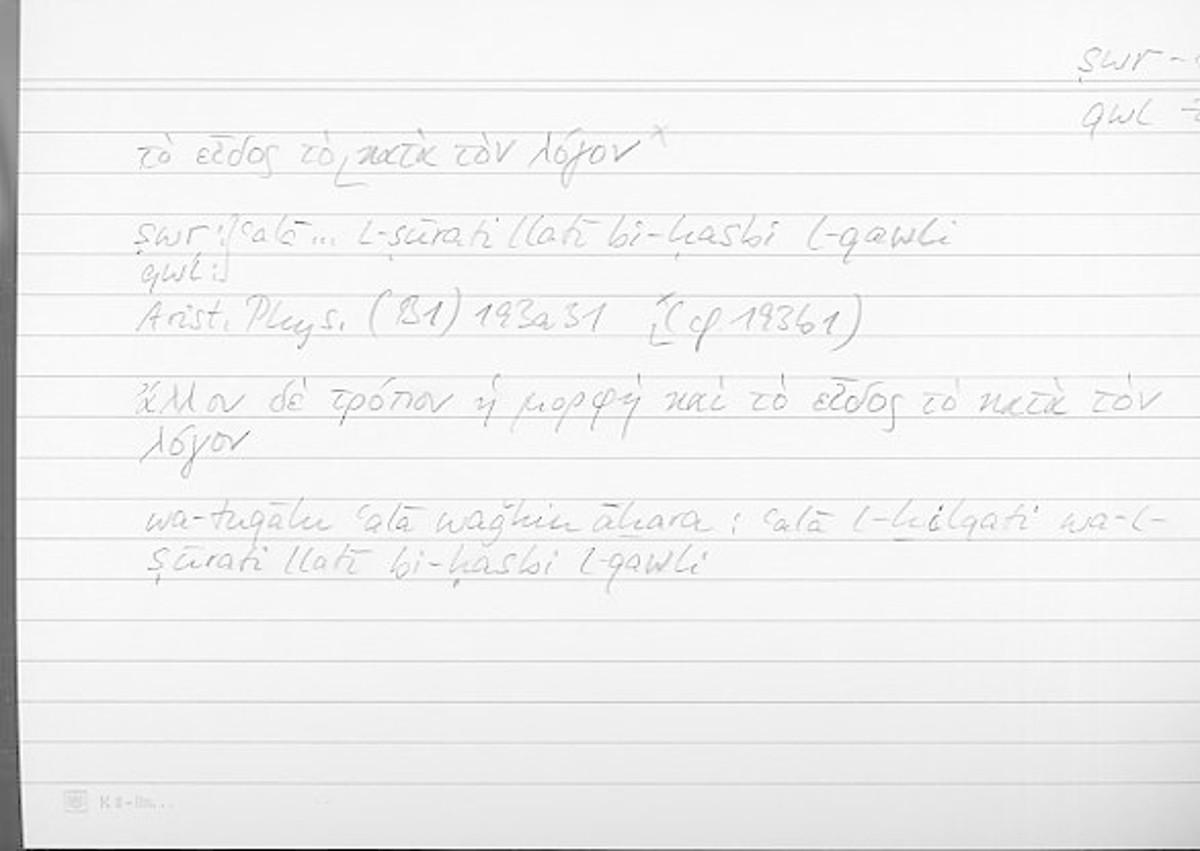 ṣwr
qwl
τὸ εἶδος τὸ κατὰ τὸν λόγον ×
ṣwr: ʿalā... l-ṣūrati llatī bi-ḥasbi l-qawli
qwl:
Arist. Phys. (B1) 193a31 ×(cf 193b1)
ἄλλον δὲ τρόπον ἡ μορφὴ καὶ τὸ εἶδος τὸ κατὰ τὸν
λόγον
wa-tuqālu ʿalā waǧhin āḫara : ʿalā l-ḫilqati wa-l-
ṣūrati llatī bi-ḥasbi l-qawli